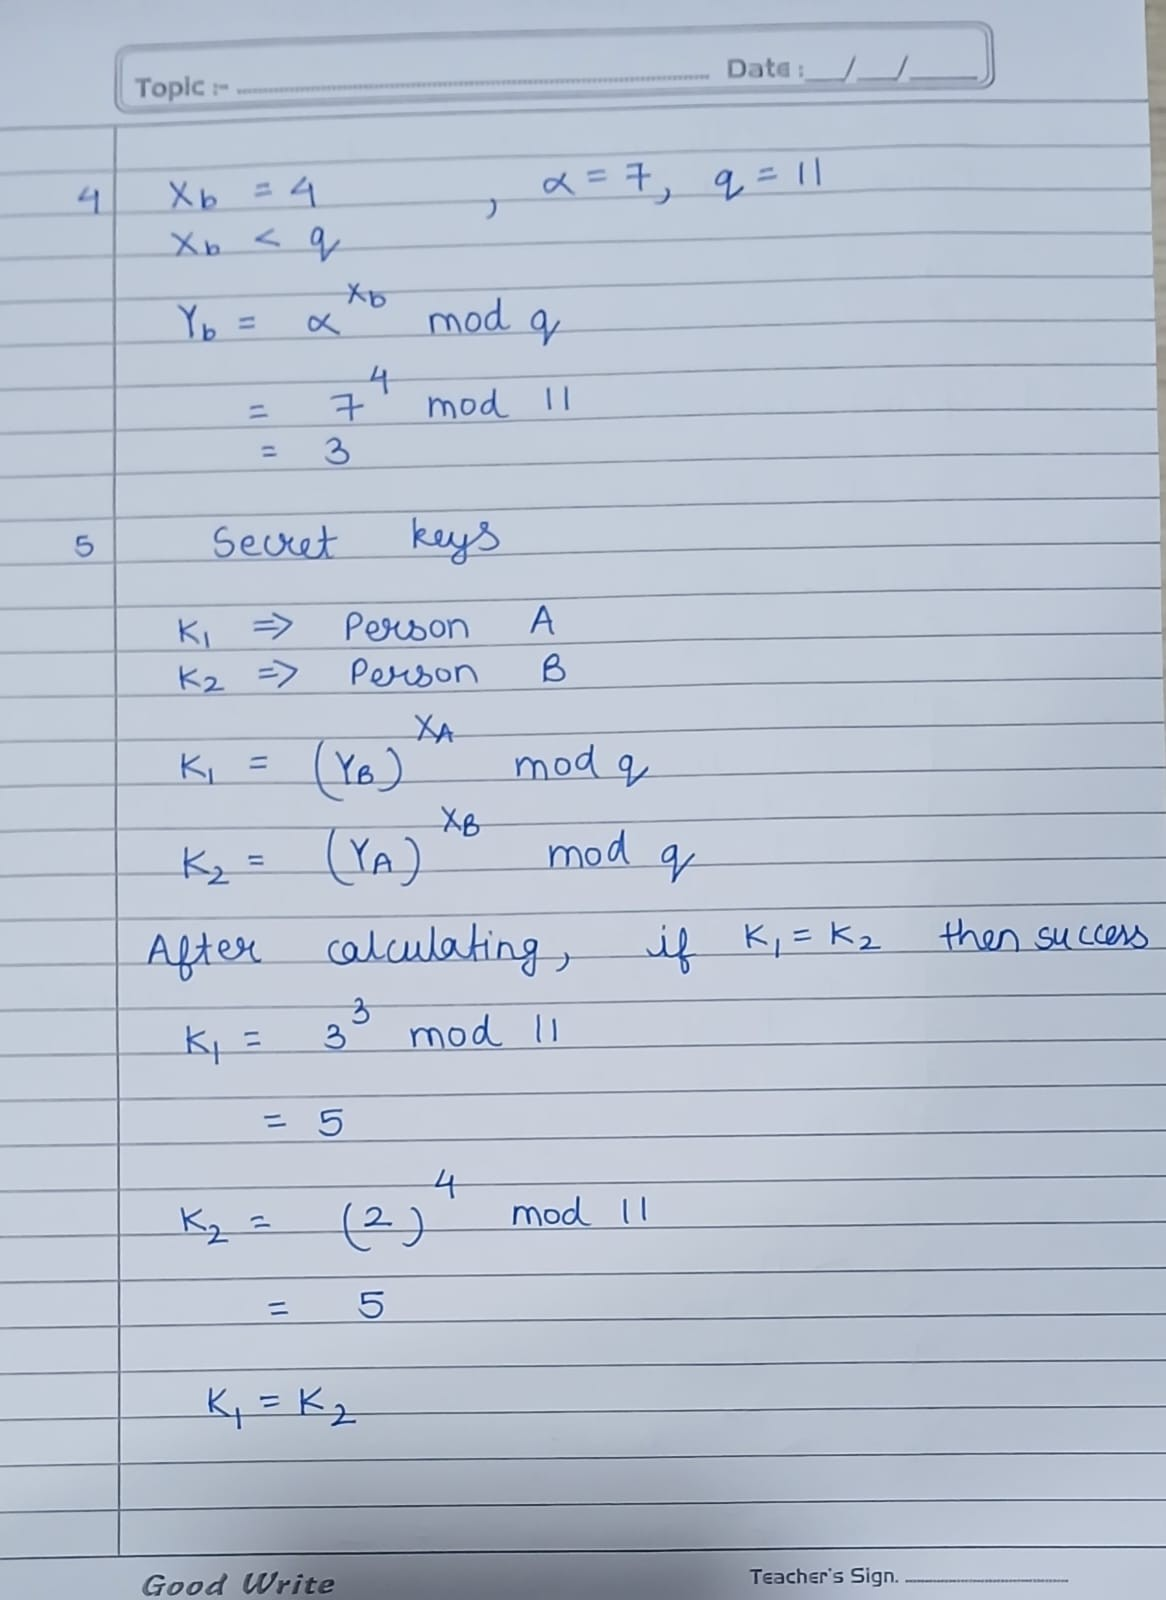 Topic :- Date : __/__/____
4 Xb = 4 , α = 7, q = 11
Xb < q
Yb = α^Xb mod q
= 7^4 mod 11
= 3
5 Secret keys
K1 ⇒ Person A
K2 ⇒ Person B
K1 = (YB)^XA mod q
K2 = (YA)^XB mod q
After calculating, if K1 = K2 then success
K1 = 3^3 mod 11
= 5
K2 = (2)^4 mod 11
= 5
K1 = K2
Good Write Teacher's Sign.